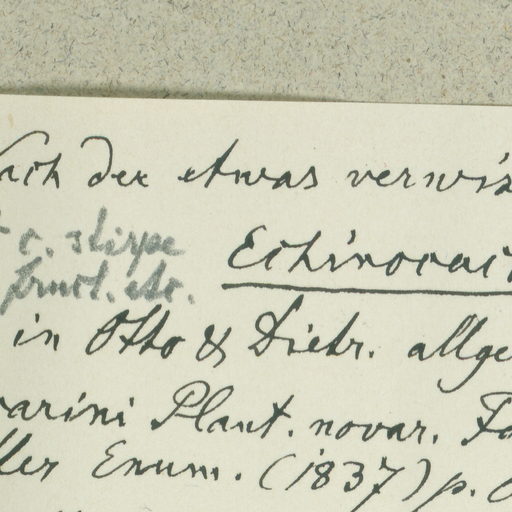 Nach der etwas verwis
c. stirpe
fruct. etc.
Echinocac
in Otto & Dietr. allge
carini Plant. novar. Fa
ller Enum. (1837) p.